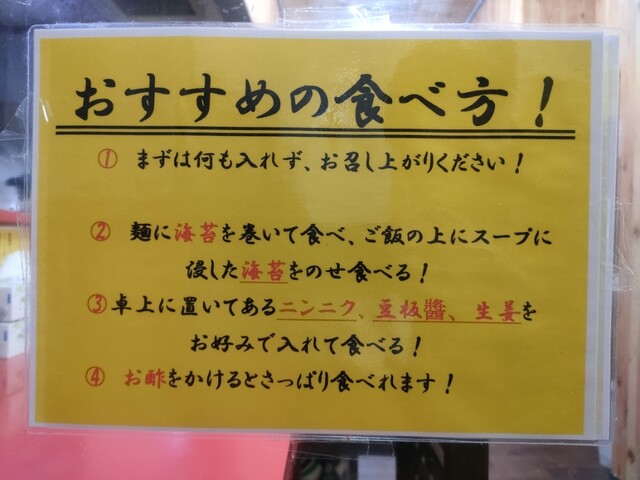 おすすめの食べ方！
① まずは何も入れず、お召し上がりください！
② 麺に海苔を巻いて食べ、ご飯の上にスープに
浸した海苔をのせ食べる！
③卓上に置いてあるニンニク、豆板醬、生姜を
お好みで入れて食べる！
④ お酢をかけるとさっぱり食べれます！